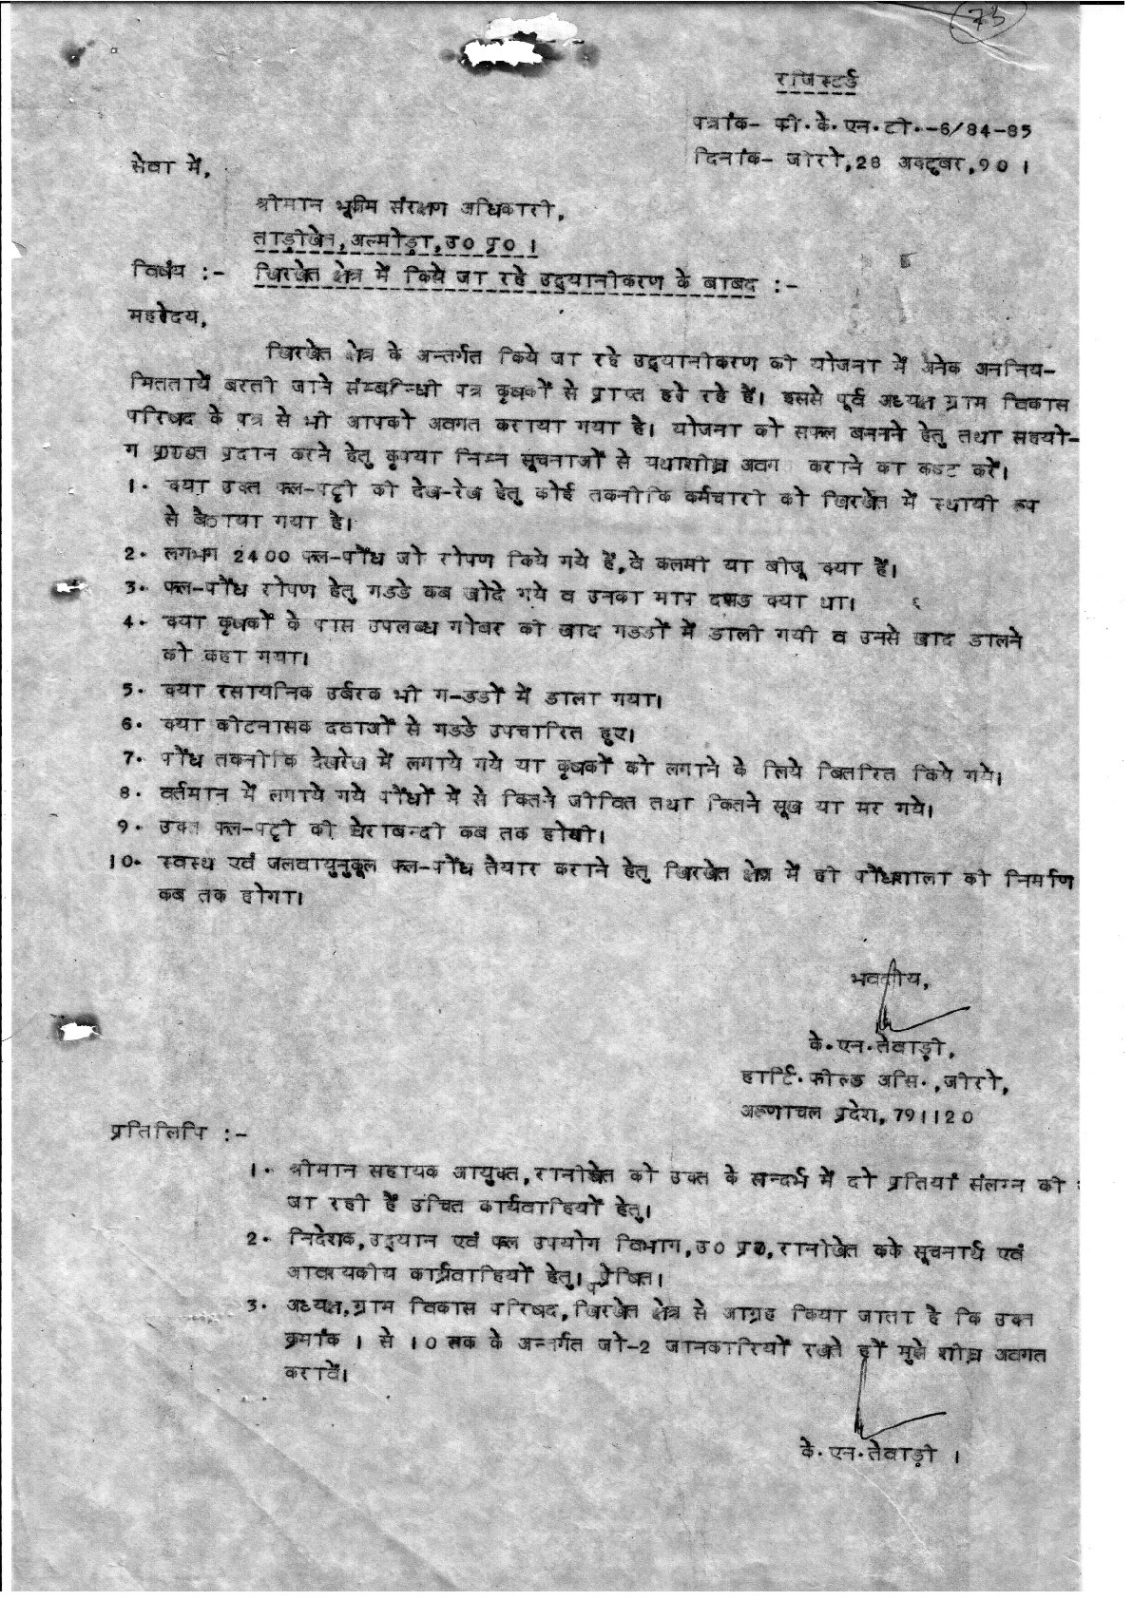 73
रजिस्टर्ड
पत्रांक- फी.के.एन.टी.-6/84-85
दिनांक- जीरो,28 अक्टूबर,90 ।
सेवा में,
श्रीमान भूमि संरक्षण अधिकारी,
ताड़ीखेत,अल्मोड़ा,उ0 प्र0 ।
विषय :- खिरखेत क्षेत्र में किये जा रहे उद्यानीकरण के बाबद :-
महोदय,
खिरखेत क्षेत्र के अन्तर्गत किये जा रहे उद्यानीकरण की योजना में अनेक अननिय-
मिततायें बरती जाने सम्बन्धि पत्र कृषकों से प्राप्त हो रहे हैं। इससे पूर्व अध्यक्ष ग्राम विकास
परिषद के पत्र से भी आपको अवगत कराया गया है। योजना को सफल बनने हेतु तथा सहयो-
ग प्रदान करने हेतु कृपया निम्न सूचनाओं से यथाशीघ्र अवग कराने का कष्ट करें।
1. क्या उक्त फल-पट्टी की देख-रेख हेतु कोई तकनीकि कर्मचारी को खिरखेत में स्थायी रूप
से बैठाया गया है।
2. लगभग 2400 फल-पौंध जो रोपण किये गये हैं,वे कलमी या बीजू क्या हैं।
3. फल-पौंध रोपण हेतु गडडे कब खोदे गये व उनका माप दण्ड क्या था।
4. क्या कृषकों के पास उपलब्ध गोबर की खाद गडडों में डाली गयी व उनसे खाद डालने
को कहा गया।
5. क्या रसायनिक उर्वरक भी ग-डडों में डाला गया।
6. क्या कीटनासक दवाओं से गडडे उपचारित हुए।
7. पौंध तकनीकि देखरेख में लगाये गये या कृषकों को लगाने के लिये वितरित किये गये।
8. वर्तमान में लगाये गये पौंधों में से कितने जीवित तथा कितने सूख या मर गये।
9. उक्त फल-पट्टी की घेराबन्दी कब तक होगी।
10. स्वस्थ एवं जलवायुनुकूल फल-पौंध तैयार कराने हेतु खिरखेत क्षेत्र में ही पौंधशाला की निर्माण
कब तक होगा।
भवदीय,
के.एन.तेवाड़ी,
हार्टि.फील्ड असि.,जीरो,
अरूणाचल प्रदेश,791120
प्रतिलिपि :-
1. श्रीमान सहायक आयुक्त,रानीखेत को उक्त के सन्दर्भ में दो प्रतियां संलग्न की
जा रही हैं उचित कार्यवाहियों हेतु।
2. निदेशक,उद्यान एवं फल उपयोग विभाग,उ0 प्र0,रानीखेत कके सूचनार्थ एवं
आवश्यकीय कार्यवाहियों हेतु। प्रेषित।
3. अध्यक्ष,ग्राम विकास परिषद,खिरखेत क्षेत्र से आग्रह किया जाता है कि उक्त
क्रमांक 1 से 10 तक के अन्तर्गत जो-2 जानकारियों रखते हों मुझे शीघ्र अवगत
करावें।
के.एन.तेवाड़ी ।